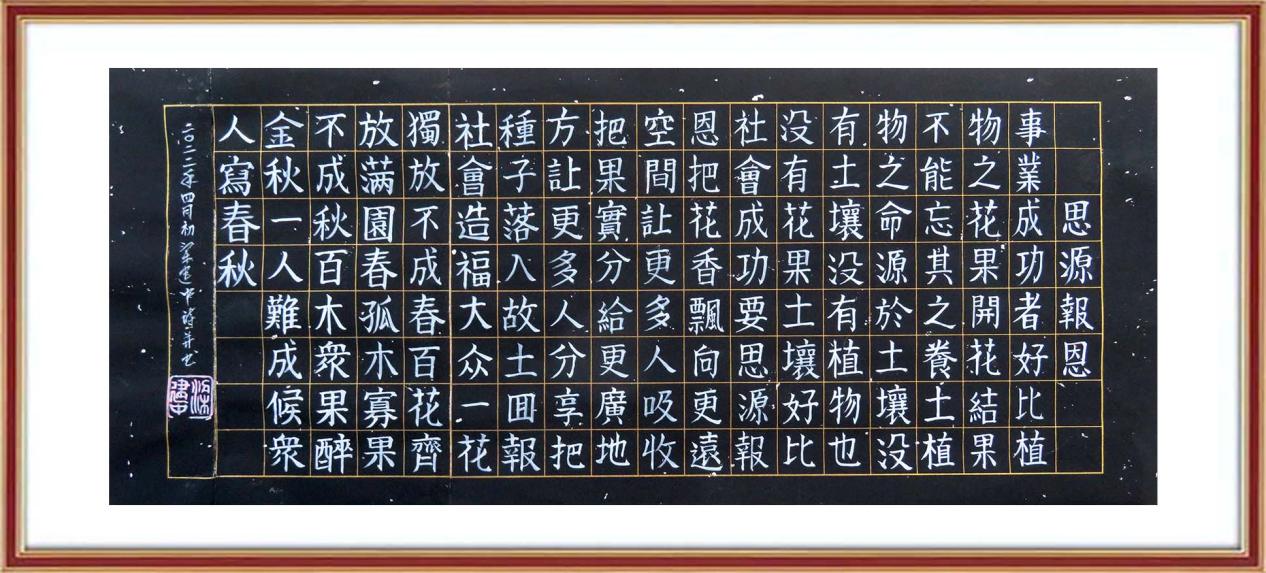 思源報恩
事業成功者好比植
物之花果開花結果
不能忘其之養土植
物之命源於土壤没
有土壤没有植物也
没有花果土壤好比
社會成功要思源報
恩把花香飄向更遠
空間让更多人吸收
把果實分給更廣地
方让更多人分享把
種子落入故土囬報
社會造福大众一花
獨放不成春百花齊
放满園春孤木寡果
不成秋百木衆果醉
金秋一人難成候衆
人寫春秋
二〇二二年四月初梁建中詩并书
梁建中